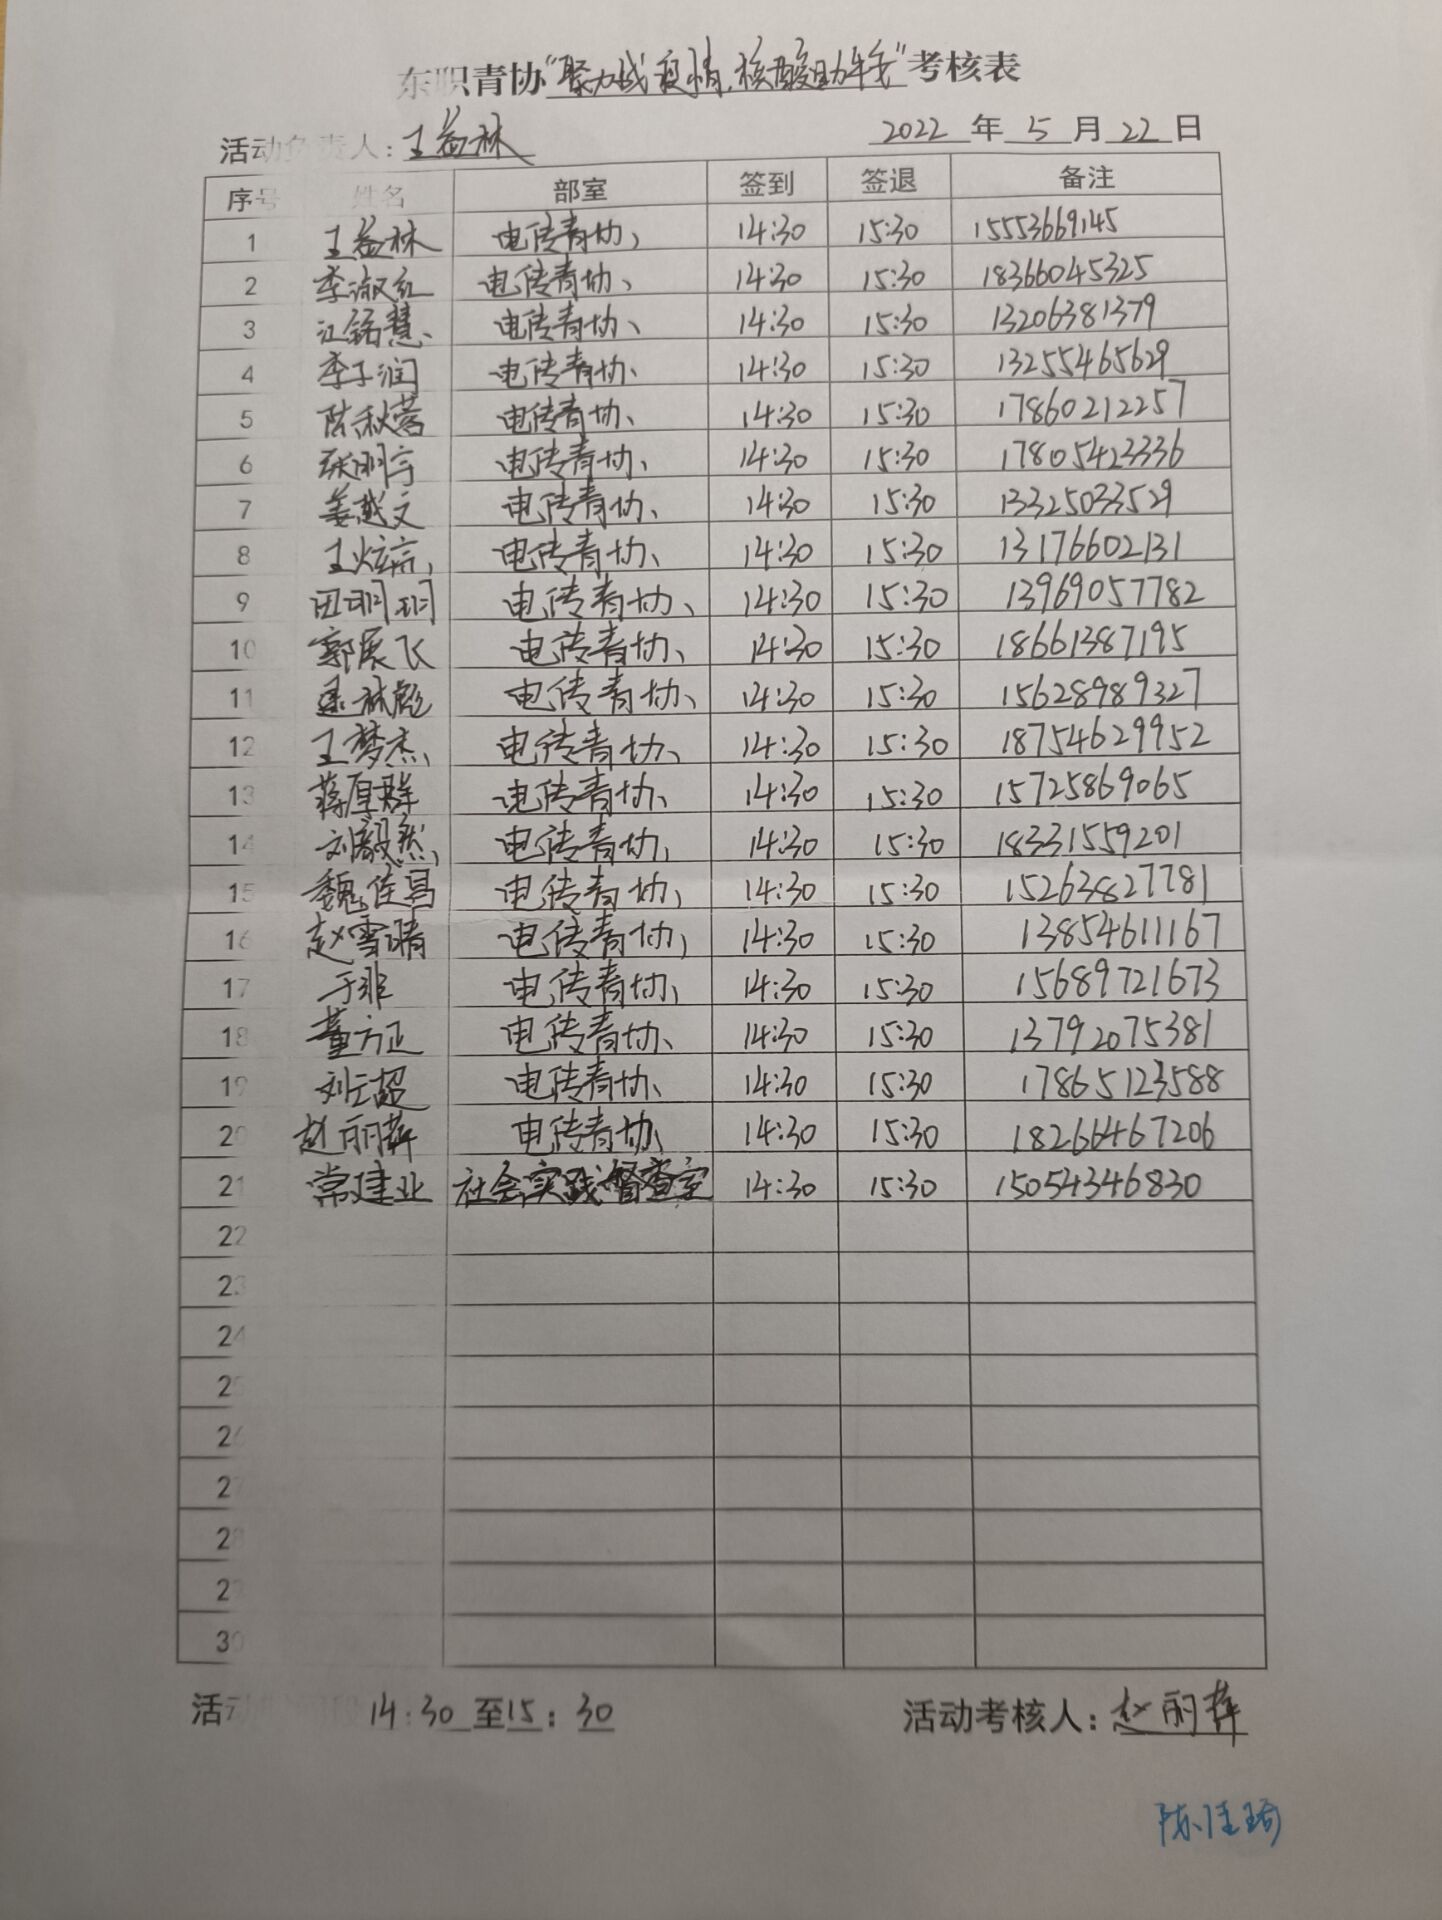 东职青协“聚力战疫情,核酸助年我”考核表
活动负责人:王益林 2022年5月22日
序号 姓名 部室 签到 签退 备注
1 王益林 电传青协、 14:30 15:30 15553669145
2 李淑红 电传青协、 14:30 15:30 18366045325
3 江铭慧、 电传青协、 14:30 15:30 13206381379
4 李子润 电传青协、 14:30 15:30 13255465629
5 陈秋蓉 电传青协、 14:30 15:30 17860212257
6 张明宇 电传青协、 14:30 15:30 17805423336
7 姜懿文 电传青协、 14:30 15:30 13325033529
8 王炫 电传青协、 14:30 15:30 13176602131
9 田玥玥 电传青协、 14:30 15:30 13969057782
10 郭展飞 电传青协、 14:30 15:30 18661387195
11 林彪 电传青协、 14:30 15:30 15628989327
12 王梦杰、 电传青协、 14:30 15:30 18754629952
13 蒋厚群 电传青协、 14:30 15:30 15725869065
14 刘毅然、 电传青协、 14:30 15:30 18331559201
15 魏佳昌 电传青协、 14:30 15:30 15263827781
16 赵雪晴 电传青协、 14:30 15:30 13854611167
17 于非 电传青协、 14:30 15:30 15689721673
18 董方正 电传青协、 14:30 15:30 13792075381
19 刘云超 电传青协、 14:30 15:30 17865123588
20 赵丽萍 电传青协、 14:30 15:30 18266467206
21 常建业 社会实践督查室 14:30 15:30 15054346830
22
23
24
25
26
27
28
29
30
活动 14:30至15:30 活动考核人:赵丽萍
陈佳琦